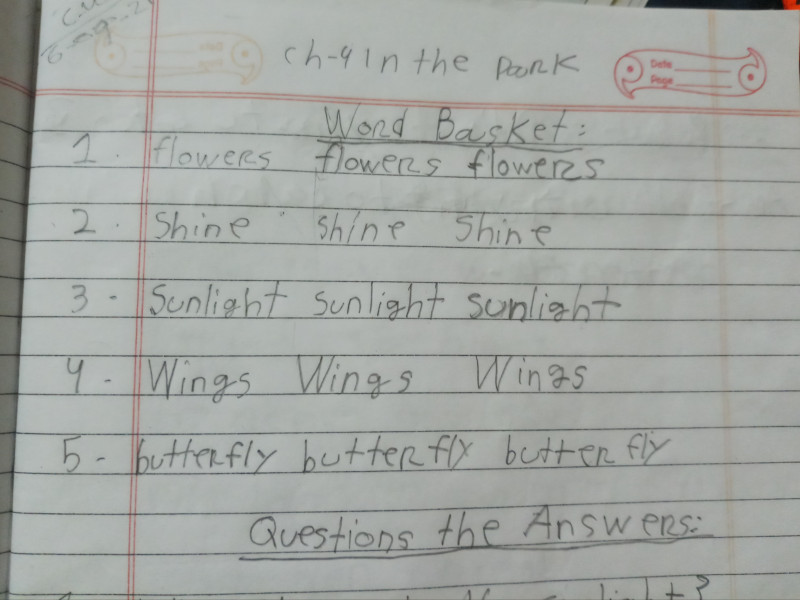 C.W
Ch-4 In the Park
Date
Page
Word Basket:
1. flowers flowers flowers
2. Shine shine Shine
3 - Sunlight sunlight sunlight
4 - Wings Wings Wings
5 - butterfly butterfly butterfly
Questions the Answers: